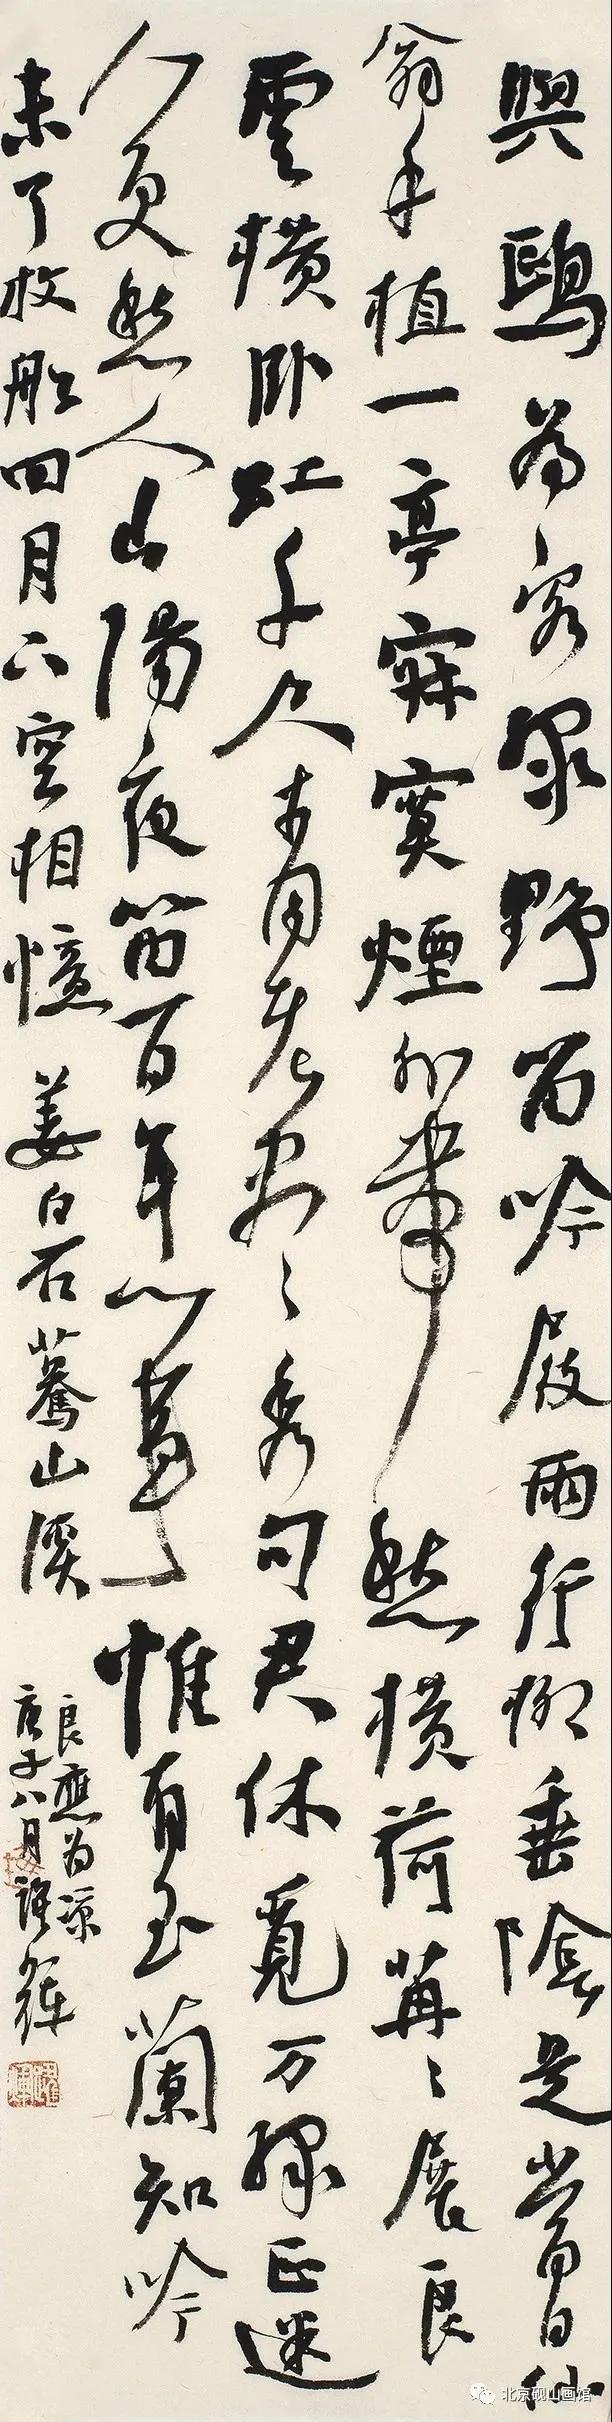 與鷗為客綠野留吟屐兩行柳垂陰是當日仙
翁手植一亭寂寞煙外帶愁橫荷苒々展良
雲橫卧虹千尺才因老尽秀句君休覓万綠正迷
人更愁入山陽夜笛百年心事惟有玉蘭知吟
未了放船回月下空相憶 姜白石驀山溪
良應为涼
庚子八月
北京砚山画馆